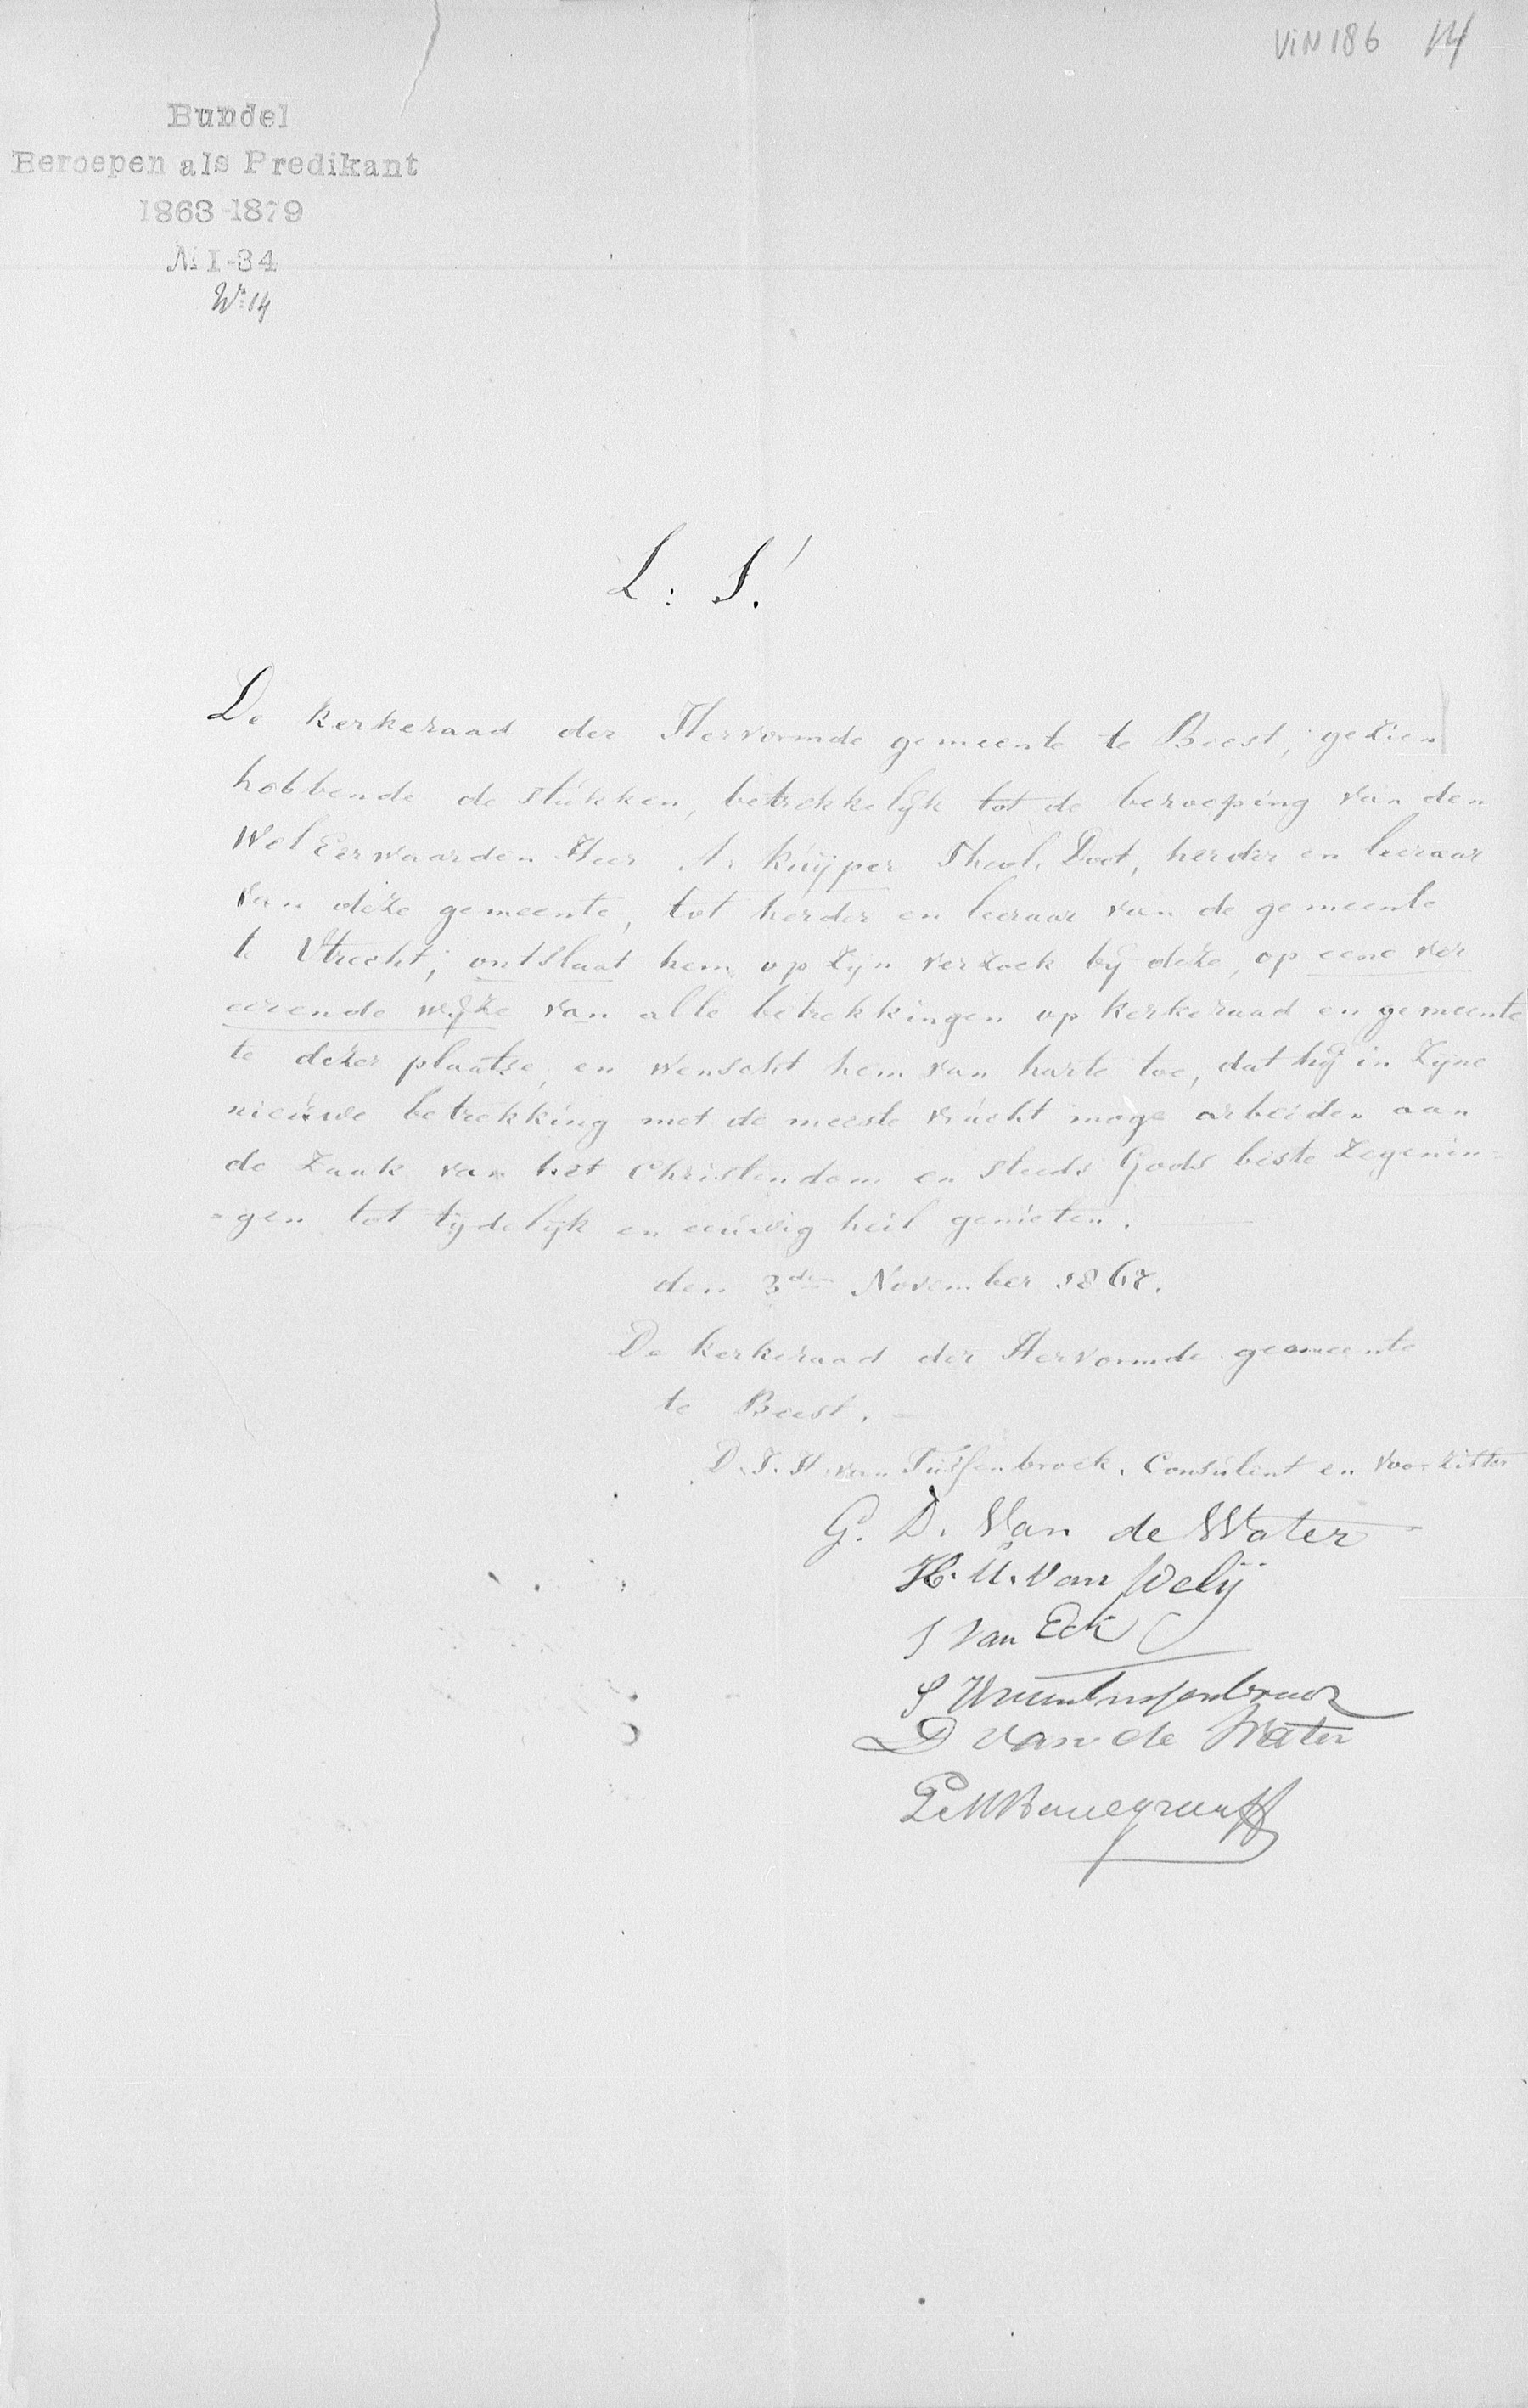 VIN 186 14
Bundel
Beroepen als Predikant
1863-1879
№ I-34
No 14
L: S.!
De kerkeraad der Hervormde gemeente te Beest, gezien
hebbende de stukken, betrekkelijk tot de beroeping van den
WelEerwaarden Heer A. Kuijper Theol. Doct, herder en leeraar
van deze gemeente, tot herder en leeraar van de gemeente
te Utrecht; ontslaat hem op zijn verzoek bij deze, op eene ver
eerende wijze van alle betrekkingen op kerkeraad en gemeente
te dezer plaatse, en wenscht hem van harte toe, dat hij in zijne
nieuwe betrekking met de meeste vrucht moge arbeiden aan
de zaak van het Christendom en steeds Gods beste zegenin=
=gen tot tijdelijk en eeuwig heil genieten.
den 3den November 1867.
De kerkeraad der Hervormde gemeente
te Beest.
D. J. H. van Tussenbroek. Consulent en voorzitter
G. D. Van de Water
H. U. van Welij
J van Eck
D van de Water